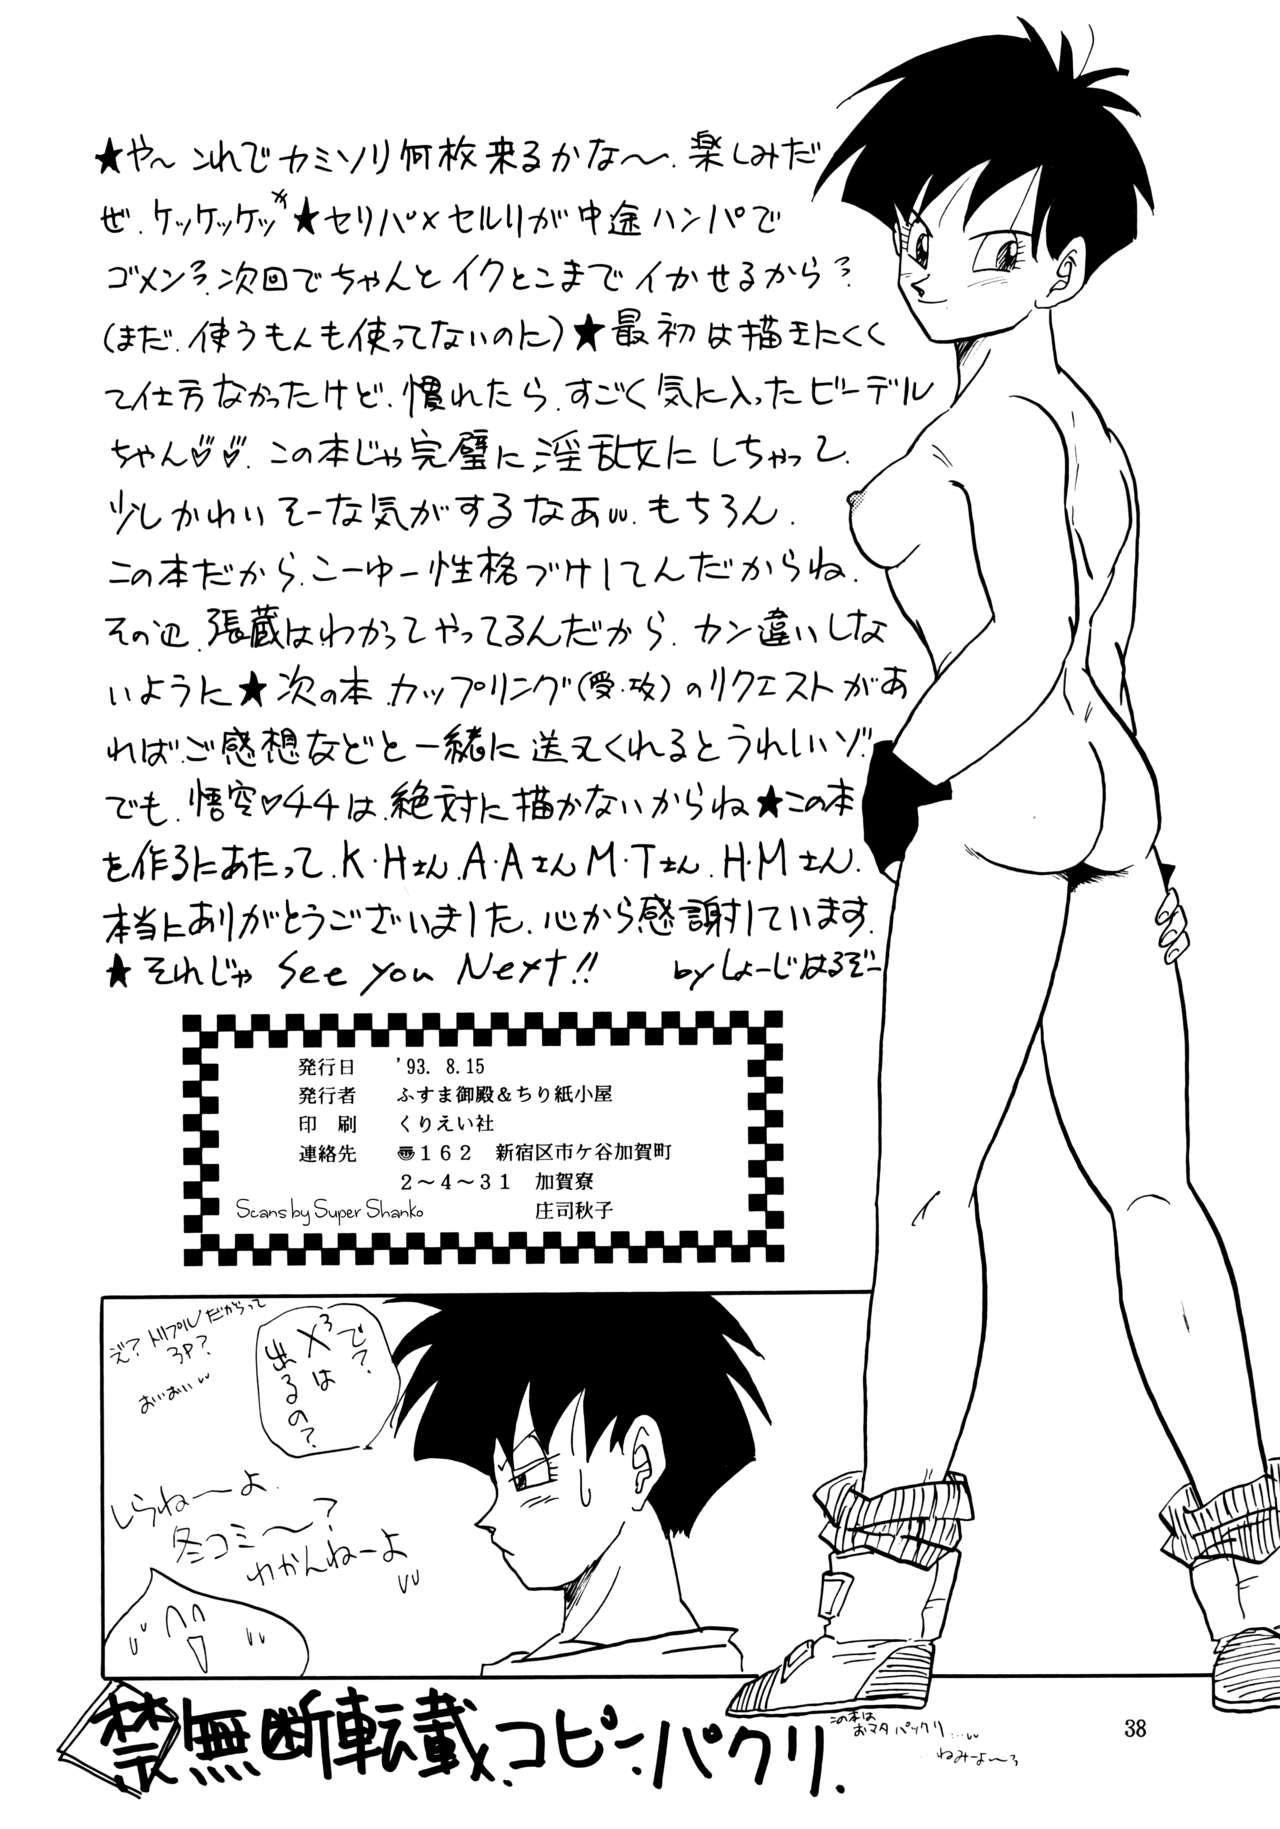 ★や〜これでカミソリ何枚来るかな〜.楽しみだ
ぜ.ケッケッケッ★セリパ×セルリが中途ハンパで
ゴメンネ.次回でちゃんとイクとこまでイかせるからネ
(まだ.使うもんも使ってないのに)★最初は描きにくく
て仕方なかったけど.慣れたら.すごく気に入ったビーデル
ちゃん♡♡.この本じゃ完璧に淫乱女にしちゃって.
少しかわいそーな気がするなあw.もちろん.
この本だから.こーゆー性格づけしてんだからね.
その辺.張蔵はわかってやってるんだから.カン違いしな
いように★次の本.カップリング(受・攻)のリクエストがあ
れば.ご感想などと一緒に送ってくれるとうれしいゾ.
でも.悟空♡チチは.絶対に描かないからね★この本
を作るにあたって.K・Hさん.A・Aさん M・Tさん.H・Mさん.
本当にありがとうございました.心から感謝しています.
★それじゃ See you Next!! by しょーじはるぞー
発行日 '93. 8.15
発行者 ふすま御殿＆ちり紙小屋
印 刷 くりえい社
連絡先 〠１６２ 新宿区市ケ谷加賀町
２〜４〜３１ 加賀寮
Scans by Super Shanko 庄司秋子
で?
X³は
出るの?
え? トリプルだからって
3P?
おいおいw
しらねーよ.
冬コミ〜?
わかんねーよ
禁無断転載.コピー.パクリ.
この本は
おマタパックリ....w
ねみーよ〜
38